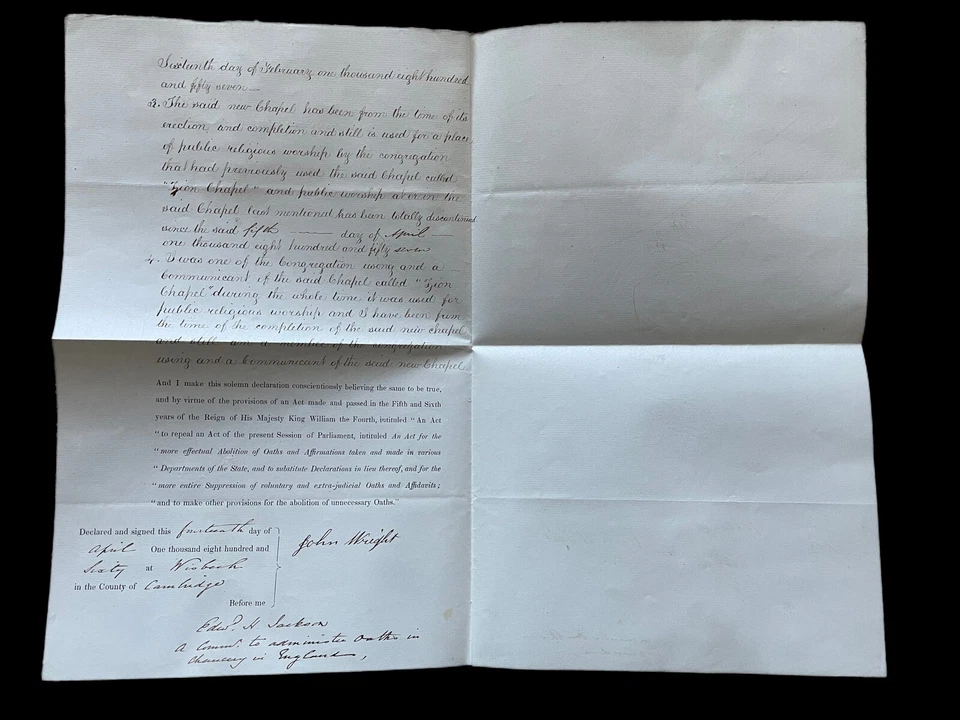 Sixteenth day of February one thousand eight hundred
and fifty seven —
3. The said new Chapel has been from the time of its
erection and completion and still is used for a place
of public religious worship by the congregation
that had previously used the said Chapel called
"Zion Chapel" and public worship at or in the
said Chapel last mentioned has been totally discontinued
since the said fifth —— day of April —
one thousand eight hundred and fifty seven
4. I was one of the Congregation using and a
Communicant of the said Chapel called "Zion
Chapel" during the whole time it was used for
public religious worship and I have been from
the time of the completion of the said new Chapel
and still am a member of the congregation
using and a Communicant of the said new Chapel
And I make this solemn declaration conscientiously believing the same to be true,
and by virtue of the provisions of an Act made and passed in the Fifth and Sixth
years of the Reign of His Majesty King William the Fourth, intituled "An Act
"to repeal an Act of the present Session of Parliament, intituled An Act for the
"more effectual Abolition of Oaths and Affirmations taken and made in various
"Departments of the State, and to substitute Declarations in lieu thereof, and for the
"more entire Suppression of voluntary and extra-judicial Oaths and Affidavits;
"and to make other provisions for the abolition of unnecessary Oaths."
Declared and signed this fourteenth day of
April One thousand eight hundred and
Sixty at Wisbech
in the County of Cambridge
John Wright
Before me
Edwd. H Jackson
A Commr. to administer Oaths in
Chancery in England,